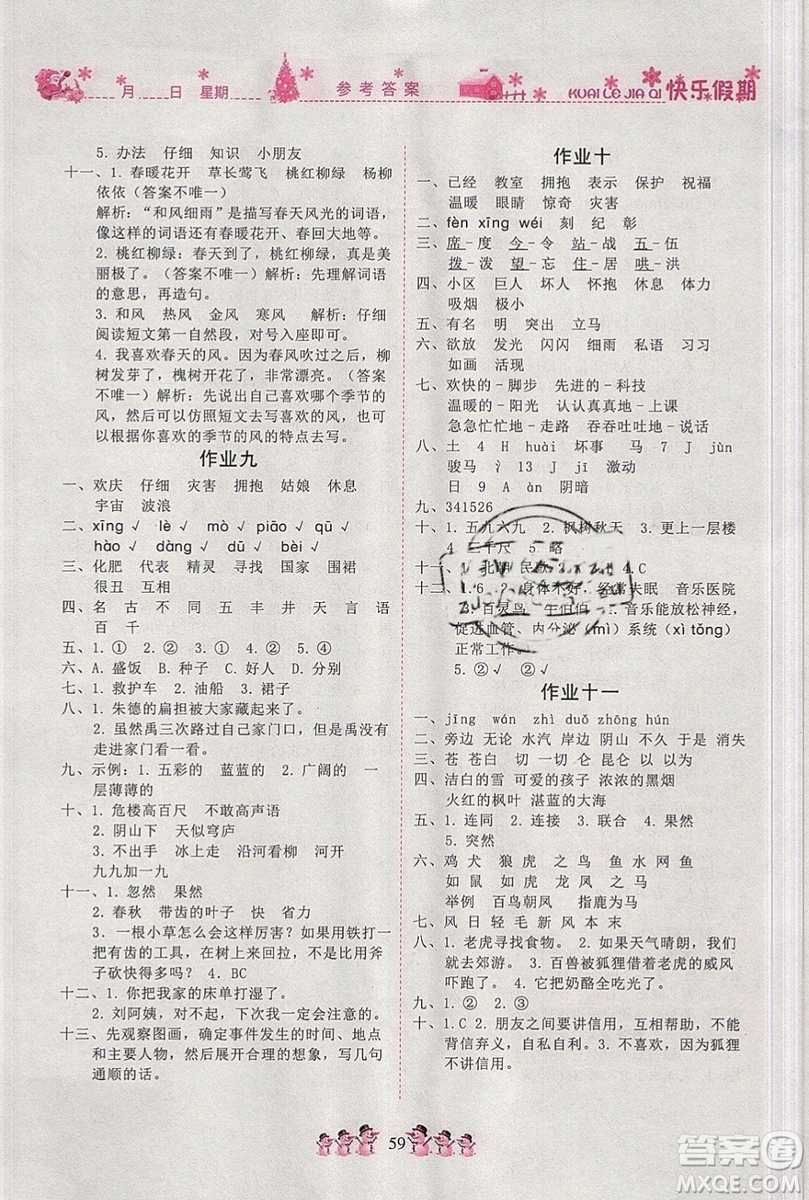 月 日 星期 参考答案 KUAI LE JIA QI 快乐假期
5. 办法 仔细 知识 小朋友
十一、1. 春暖花开 草长莺飞 桃红柳绿 杨柳
依依（答案不唯一）
解析：“和风细雨”是描写春天风光的词语，
像这样的词语还有春暖花开、春回大地等。
2. 桃红柳绿：春天到了，桃红柳绿，真是美
丽极了。（答案不唯一）解析：先理解词语
的意思，再造句。
3. 和风 热风 金风 寒风 解析：仔细
阅读短文第一自然段，对号入座即可。
4. 我喜欢春天的风。因为春风吹过之后，柳
树发芽了，槐树开花了，非常漂亮。（答案
不唯一）解析：先说出自己喜欢哪个季节的
风，然后可以仿照短文的描写来写，也可以
根据你喜欢的季节的风的特点去写。
作业九
一、欢庆 仔细 灾害 拥抱 姑娘 休息
宇宙 波浪
二、xīng √ lè √ mò √ piāo √ qū √
hào √ dàng √ dū √ bèi √
三、化肥 代表 精灵 寻找 国家 围裙
很丑 互相
四、名 古 不 同 五 丰 井 天 言 语
百 千
五、1. ① 2. ② 3. ① 4. ① 5. ②
六、A. 盛饭 B. 种子 C. 好人 D. 分别
七、1. 救护车 2. 油船 3. 裙子
八、1. 朱德的扁担被大家藏起来了。
2. 虽然禹三次路过自己家门口，但是禹没有
走进家门看一看。
九、示例：1. 五彩的 蓝蓝的 2. 广阔的 一
层薄薄的
十、1. 危楼高百尺 不敢高声语
2. 阴山下 天似穹庐
3. 不出手 冰上走 沿河看柳 河开
九九加一九
十一、1. 忽然 果然
2. 春秋 带齿的叶子 快 省力
3. 一根小草怎么会这样厉害？如果用铁打一
把有齿的工具，在树上来回拉，不是要比用斧
子砍快得多吗？ 4. BC
十二、1. 你把我家的床单打湿了。
2. 刘阿姨，对不起，下次我一定会注意的。
十三、先观察图画，确定事件发生的时间、地点
和主要人物，然后展开合理的想象，写几句
通顺的话。
作业十
一、已经 教室 拥抱 表示 保护 祝福
温暖 眼睛 惊奇 灾害
二、fèn xīng wéi 刻 纪 彰
三、席－度 今－令 站－战 五－伍
拨－泼 望－忘 住－居 哄－洪
四、小区 巨人 坏人 怀抱 休息 体力
吸烟 极小
五、有名 明 突出 立马
六、欲放 发光 闪闪 细雨 私语 习习
如画 活现
七、欢快的－脚步 先进的－科技
温暖的－阳光 认认真真地－上课
急急忙忙地－走路 吞吞吐吐地－说话
八、土 4 H huài 坏事 马 7 J jùn
骏马 氵 13 J jī 激动
日 9 A àn 阴暗
九、341526
十、1. 五九六九 2. 枫树秋天 3. 更上一层楼
4. 三千尺 5. 略
十一、1. 北朝 民歌 4. C
十二、1. 6 2. 身体不好，经常失眠 音乐医院
3. 百灵鸟 牛伯伯 4. 音乐能放松神经，
促进血管、内分泌（mì）系统（xì tǒng）
正常工作。
5. ② √
作业十一
一、jīng wán zhì duǒ zhōng hún
二、旁边 无论 水汽 岸边 阴山 不久 于是 消失
三、苍 苍白 切 一切 仑 昆仑 以 以为
四、洁白的雪 可爱的孩子 浓浓的黑烟
火红的枫叶 湛蓝的大海
五、1. 连同 2. 连接 3. 联合 4. 果然
5. 突然
六、鸡 犬 狼 虎 之 鸟 之 鱼 水 网 鱼
如 鼠 如 虎 龙 凤 之 马
举例 百鸟朝凤 指鹿为马
七、风 日 轻 毛 新 风 本 末
八、1. 老虎寻找食物。 2. 如果天气晴朗，我们
就去郊游。 3. 百兽被狐狸借着老虎的威风
吓跑了。 4. 它把奶酪全吃掉了。
九、1. ② 2. ③
十、1. C 2. 朋友之间要讲信用，互相帮助，不能
背信弃义，自私自利。3. 不喜欢，因为狐狸
不讲信用。
59
答案圈
MXQE.COM